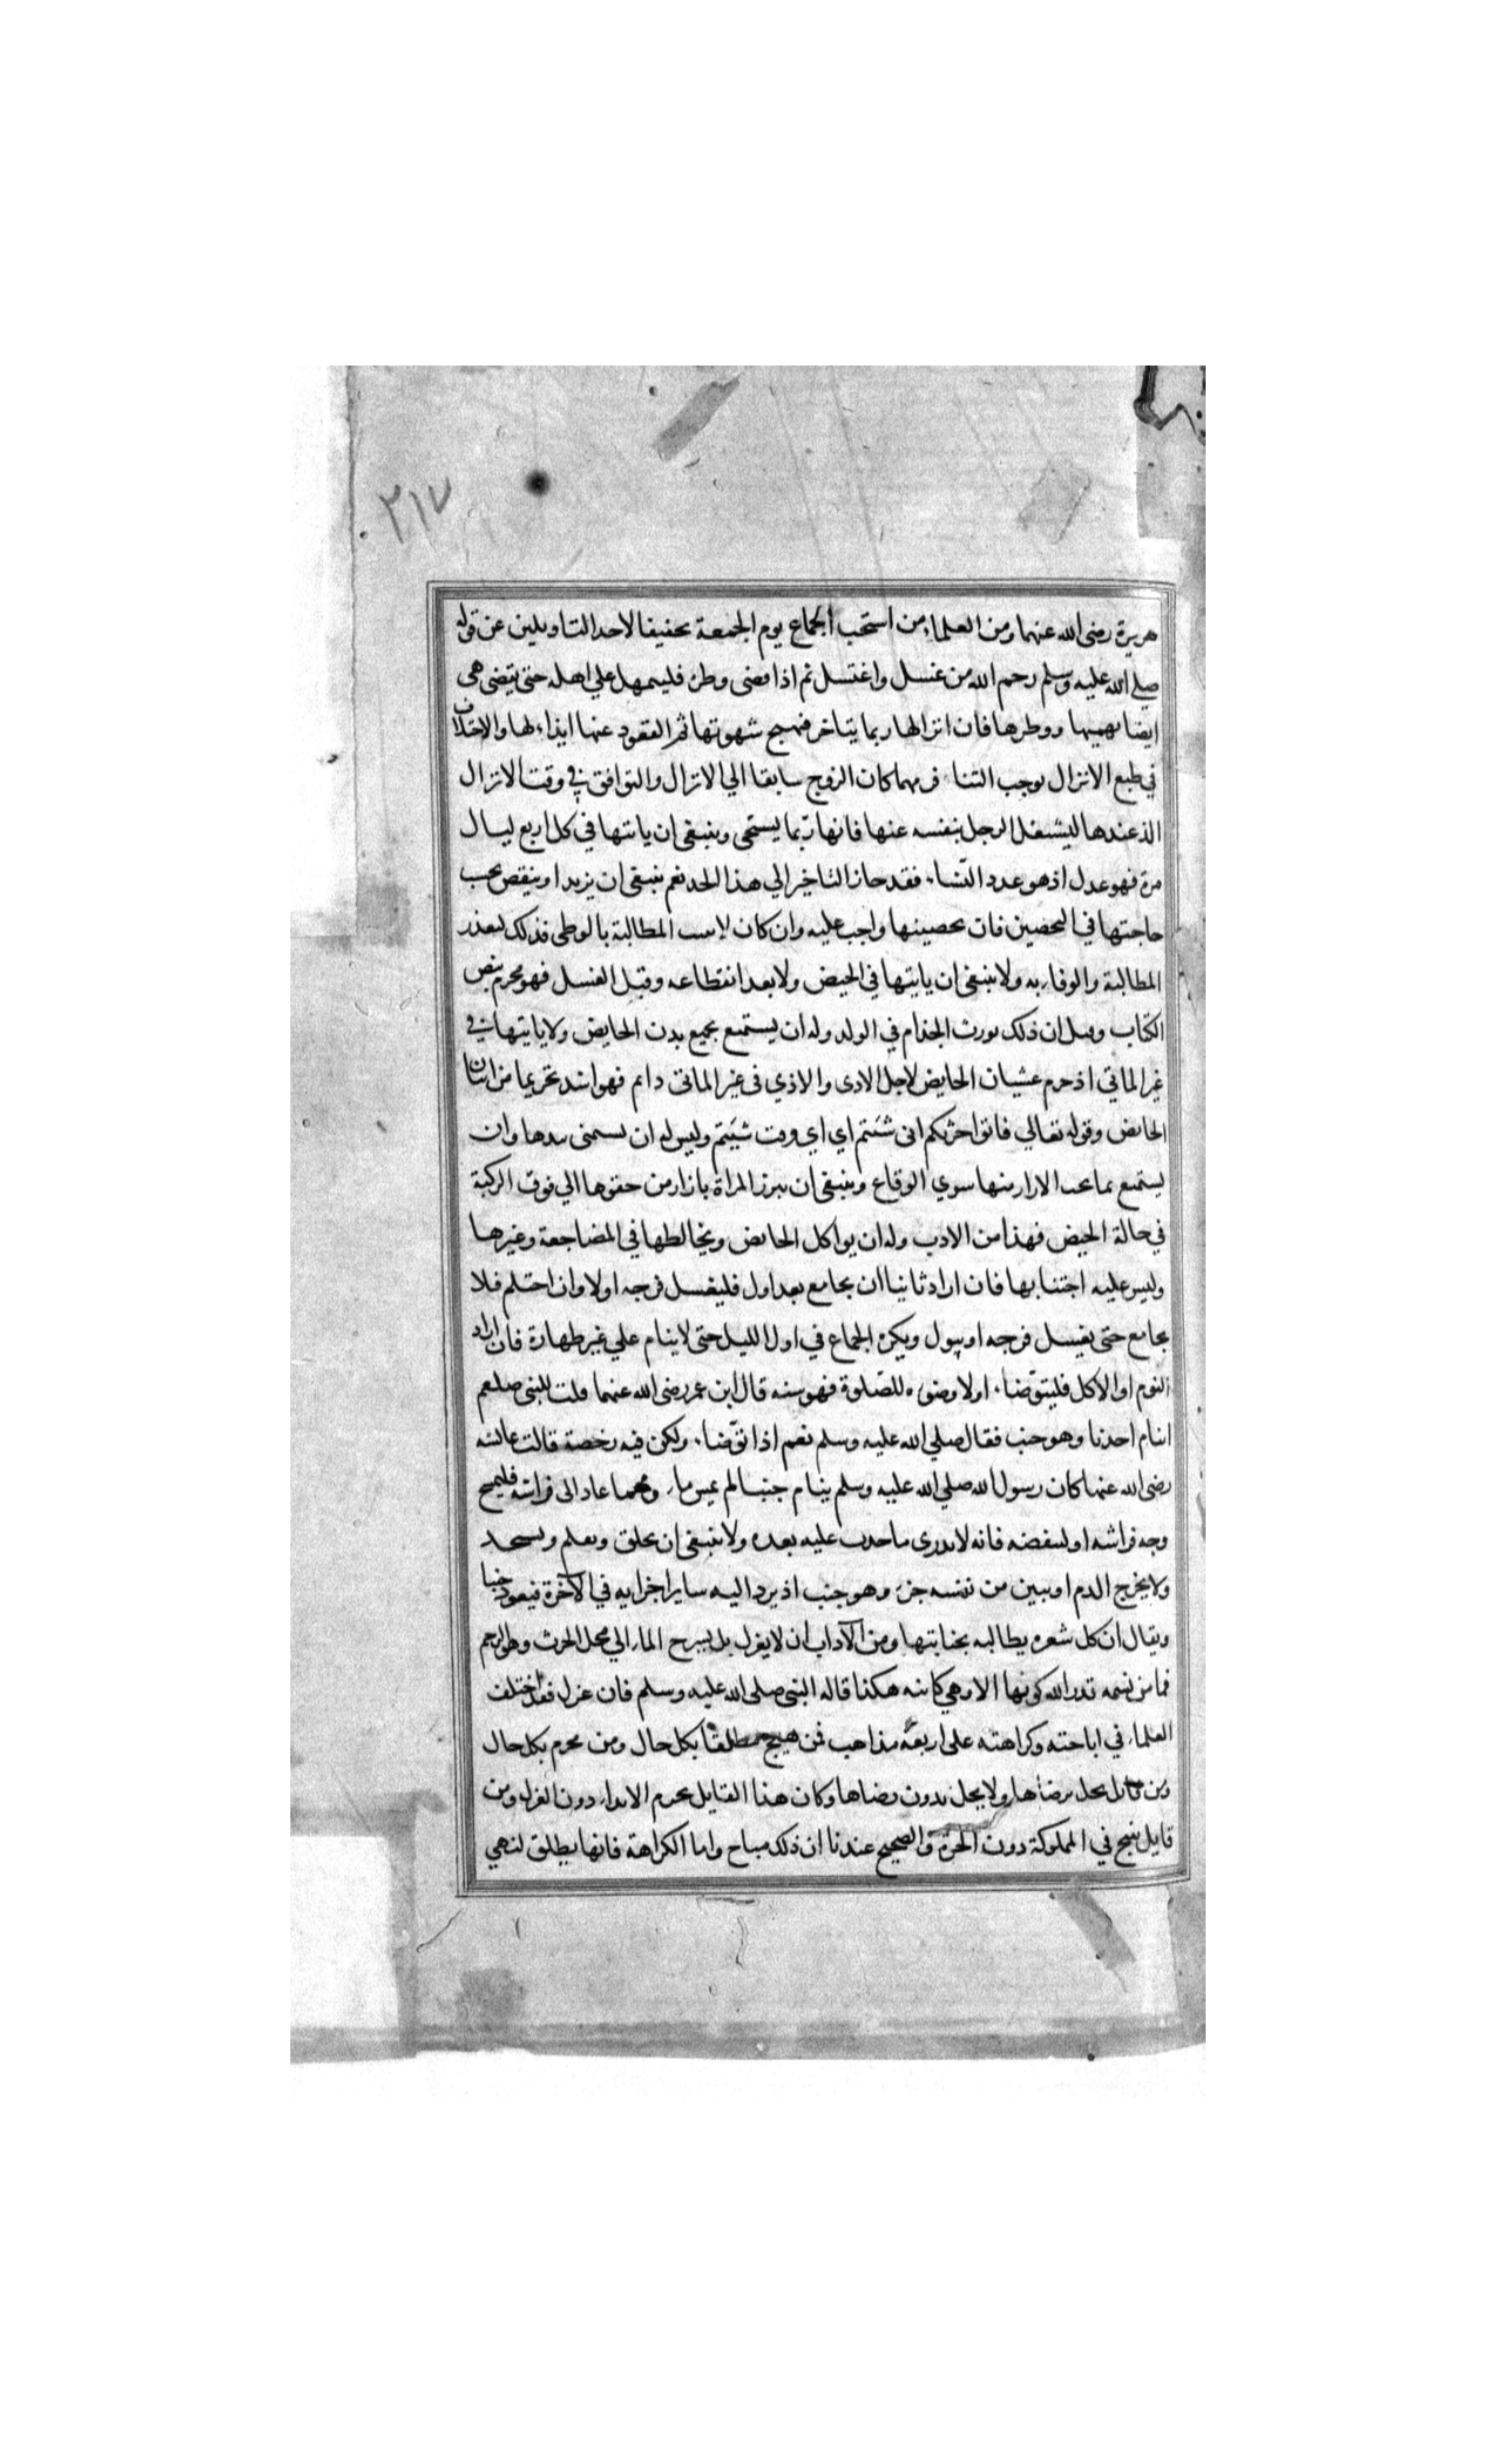 ٣١٧
هريرة رضى الله عنهما ومن العلماء من استحب الجماع يوم الجمعة تحقيقا لاحد التاويلين عن قوله
صلى الله عليه وسلم رحم الله من غسل واغتسل ثم اذا قضى وطره فليمهل علي اهله حتى تقضى هى
ايضا نهمتها ووطرها فان انزالها ربما يتاخر فيهيج شهوتها ثم القعود عنها ايذاء لها والاختلاف
في طبع الانزال يوجب التنافر مهما كان الزوج سابقا الي الانزال والتوافق في وقت الانزال
الذ عندها ليشتغل الرجل بنفسه عنها فانها ربما يستحى وينبغى ان ياتيها في كل اربع ليال
مرة فهو عدل اذ هو عدد النساء فقد جاز التاخير الي هذا الحد نعم ينبغى ان يزيد او ينقص بحسب
حاجتها في التحصين فان تحصينها واجب عليه وان كان لا يثبت المطالبة بالوطى فذلك لعذر
المطالبة والوفاء به ولا ينبغى ان ياتيها في الحيض ولا بعد انقطاعه وقبل الغسل فهو محرم بنص
الكتاب وقيل ان ذلك يورث الجذام في الولد وله ان يستمتع بجميع بدن الحايض ولا ياتيها في
غير الماتي اذ حرم غشيان الحايض لاجل الاذى والاذي فى غير الماتى دايم فهو اشد تحريما من اتيان
الحايض وقوله تعالي فاتوا حرثكم انى شئتم اي اي وقت شيتم وليس له ان يستمنى بيدها وان
يستمتع بما تحت الازار منها سوي الوقاع وينبغى ان تتزر المراة بازار من حقوها الي فوق الركبة
في حالة الحيض فهذا من الادب وله ان يواكل الحايض ويخالطها في المضاجعة وغيرها
وليس عليه اجتنابها فان اراد ثانيا ان يجامع بعد اول فليغسل فرجه اولا وان احتلم فلا
يجامع حتى يغسل فرجه او يبول ويكره الجماع في اول الليل حتى لا ينام علي غير طهارة فان اراد
النوم او الاكل فليتوضا اولا وضوءه للصلوة فهو سنه قال ابن عمر رضى الله عنهما قلت للنبى صلعم
اينام احدنا وهو جنب فقال صلي الله عليه وسلم نعم اذا توضا ولكن فيه رخصة قالت عائشه
رضى الله عنها كان رسول الله صلي الله عليه وسلم ينام جنبا لم يمس ماء ومهما عاد الى فراشه فليمسح
وجه فراشه او لينفضه فانه لا يدرى ما حدث عليه بعده ولا ينبغى ان يحلق ويقلم ويستحد
ولا يخرج الدم او يبين من نفسه جزء وهو جنب اذ يرد اليه ساير اجزايه في الآخرة فيعود جنبا
ويقال ان كل شعره يطالبه بجنابتها ومن الآداب ان لا يعزل بل يسرح الماء الي محل الحرث وهو الرحم
فما من نسمه قدر الله كونها الا وهي كاينه هكذا قاله النبى صلى الله عليه وسلم فان عزل فقد اختلف
العلماء في اباحته وكراهته على اربعه مذاهب فمن مبيح مطلقا بكل حال ومن محرم بكل حال
ومن قايل يحل برضاها ولا يحل بدون رضاها وكان هذا القايل يحرم الايذاء دون العزل ومن
قايل يبيح في المملوكة دون الحرة والصحيح عندنا ان ذلك مباح واما الكراهة فانها يطلق لنهي